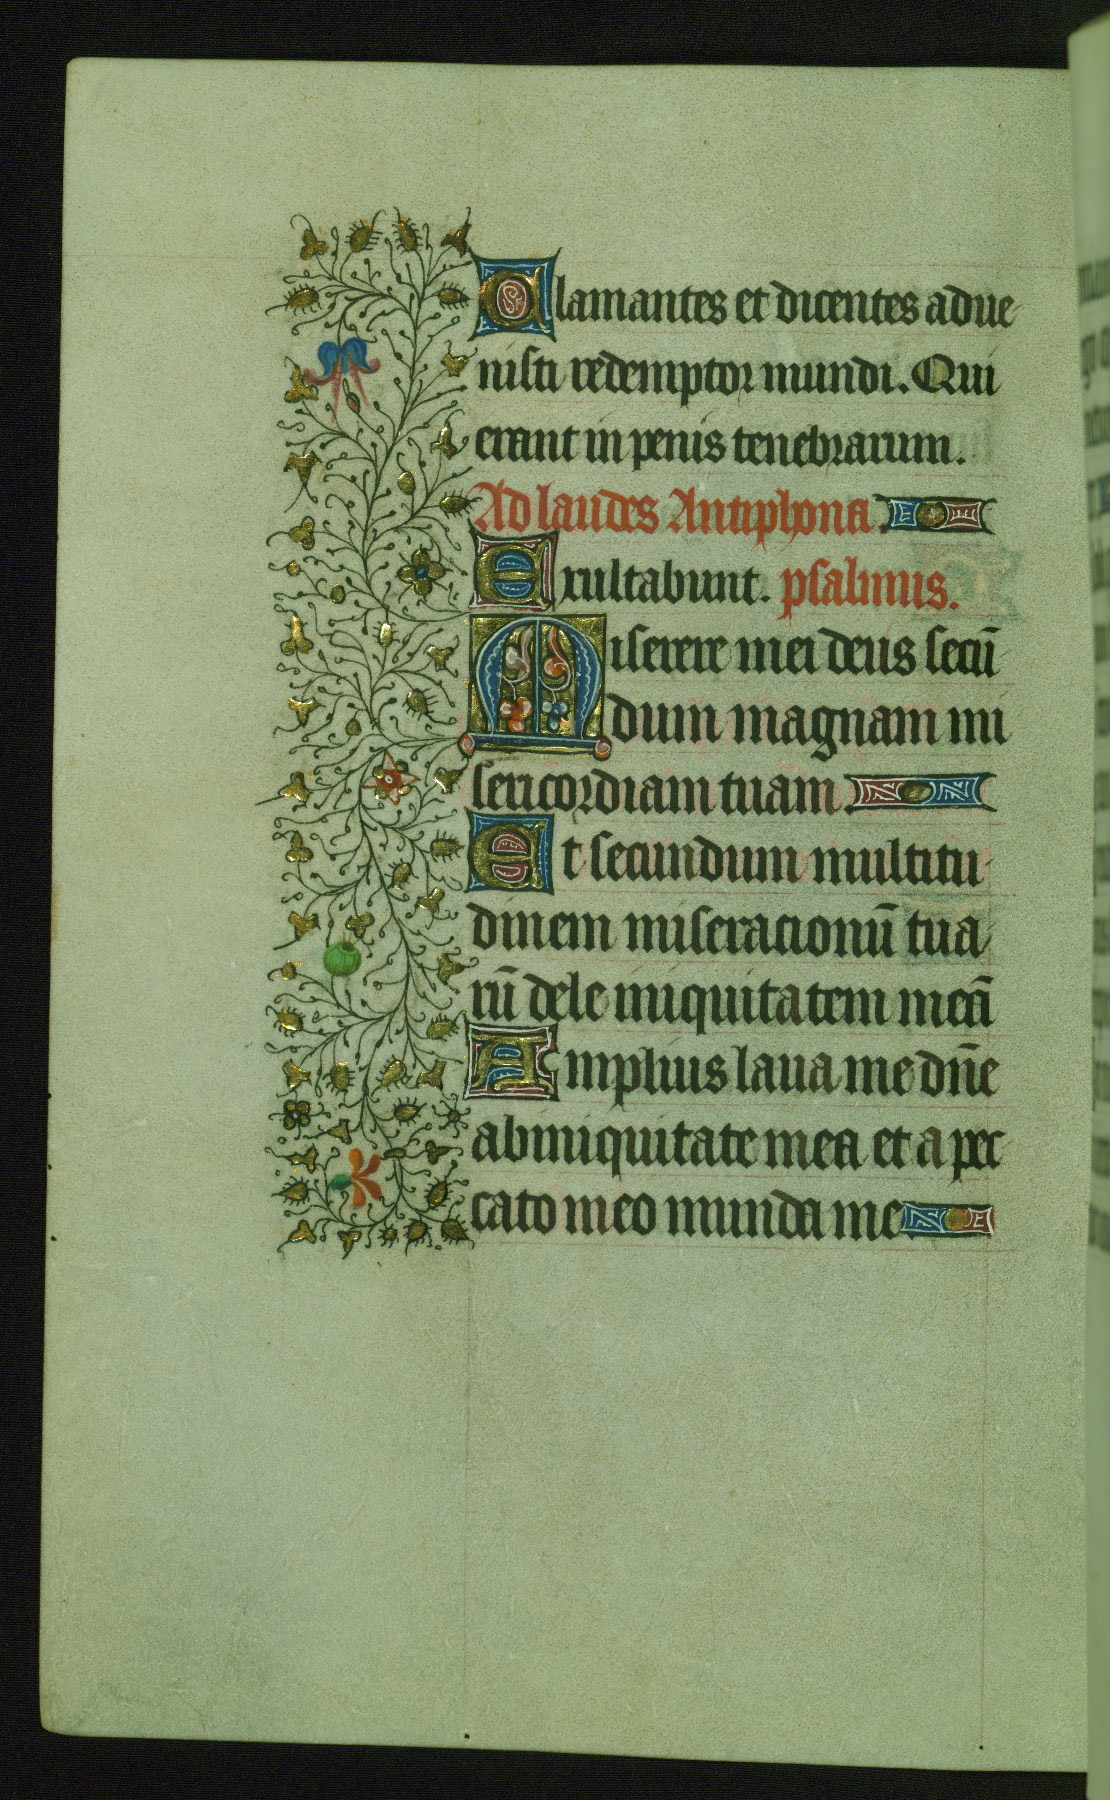 Clamantes et dicentes adue
nisti redemptor mundi. Qui
erant in penis tenebrarum.
Ad laudes Antiphona.
Exultabunt. psalmus.
Miserere mei deus secū
dum magnam mi
sericordiam tuam
Et secundum multitu
dinem miseracionū tua
rū dele iniquitatem meā
Amplius laua me dn̄e
ab iniquitate mea et a pec
cato meo munda me